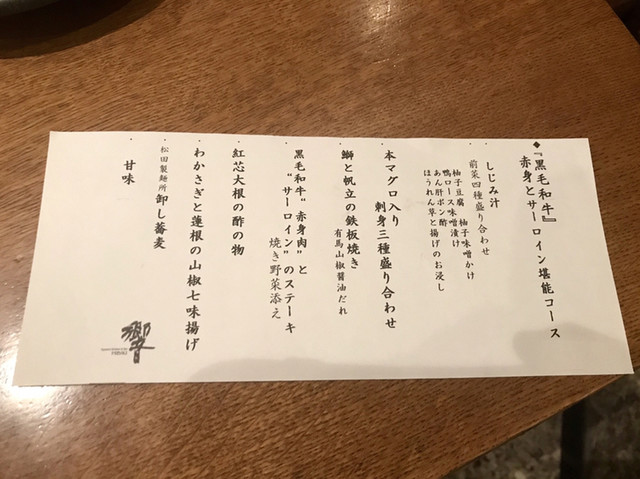 ◆『黒毛和牛』
赤身とサーロイン堪能コース
・しじみ汁
・前菜四種盛り合わせ
柚子豆腐 柚子味噌かけ
鴨ロース味噌漬け
あん肝ポン酢
ほうれん草と揚げのお浸し
・本マグロ入り
刺身三種盛り合わせ
・鰤と帆立の鉄板焼き
有馬山椒醤油だれ
・黒毛和牛“赤身肉”と
“サーロイン”のステーキ
焼き野菜添え
・紅芯大根の酢の物
・わかさぎと蓮根の山椒七味揚げ
・松田製麺所 卸し蕎麦
・甘味
響
HIBIKI